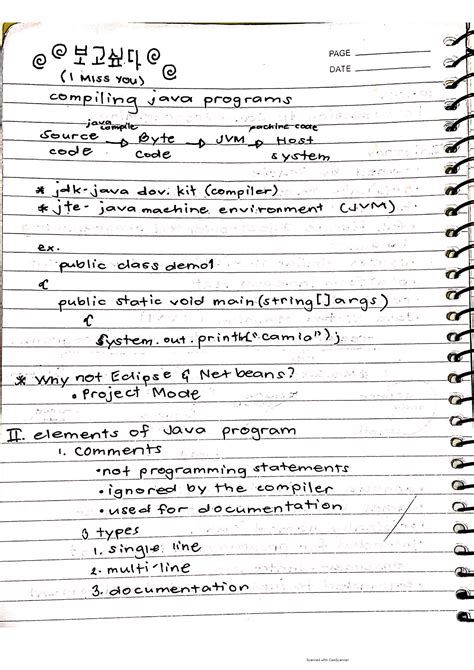 보고싶다
PAGE
DATE
(I MISS YOU)
compiling java programs
java compile machine code
Source → Byte → JVM → Host
code code system
* jdk-java dev. kit (compiler)
* jte- java machine environment (JVM)
ex.
public class demo1
{
public static void main(string[] args)
{
System.out.println("camia");
* Why not Eclipse & Netbeans?
• Project Mode
II. elements of Java program
1. comments
• not programming statements
• ignored by the compiler
• used for documentation
3 types
1. single line
2. multi-line
3. documentation
Scanned with CamScanner